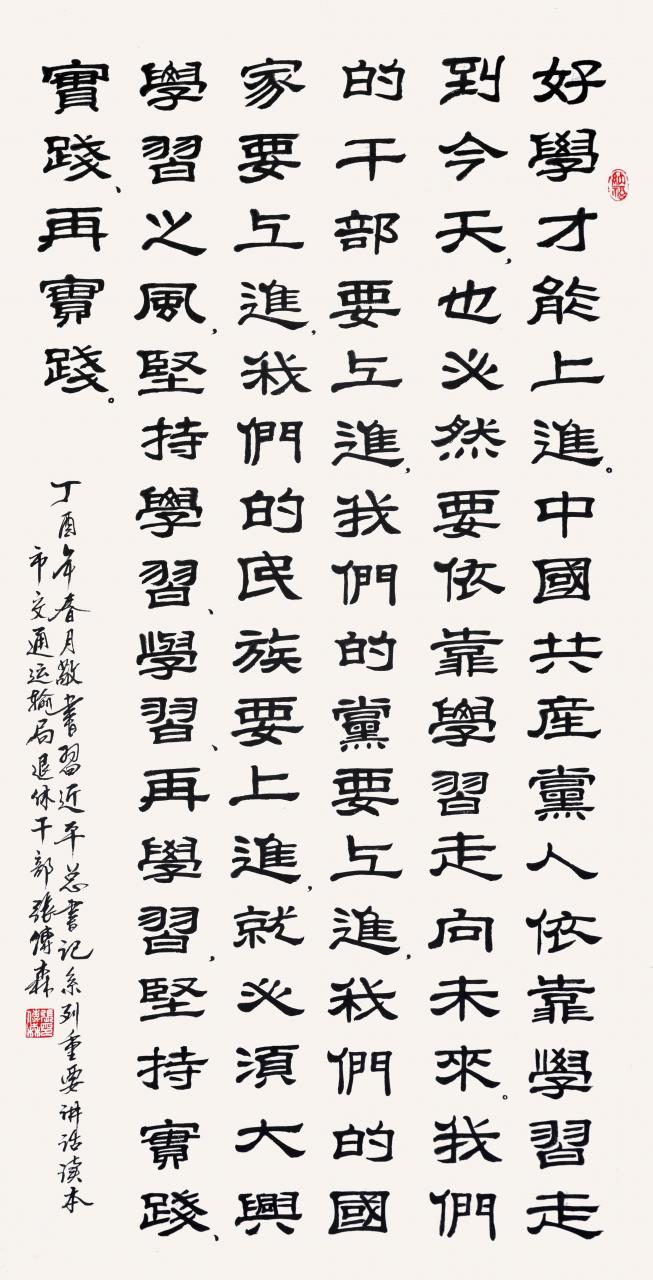 好學才能上進。中國共産黨人依靠學習走
到今天，也必然要依靠學習走向未來。我們
的干部要上進，我們的黨要上進，我們的國
家要上進，我們的民族要上進，就必須大興
學習之風，堅持學習、學習、再學習，堅持實踐、
實踐、再實踐。
丁酉年春月敬書習近平总書記系列重要讲话读本
市交通运输局退休干部張傳森